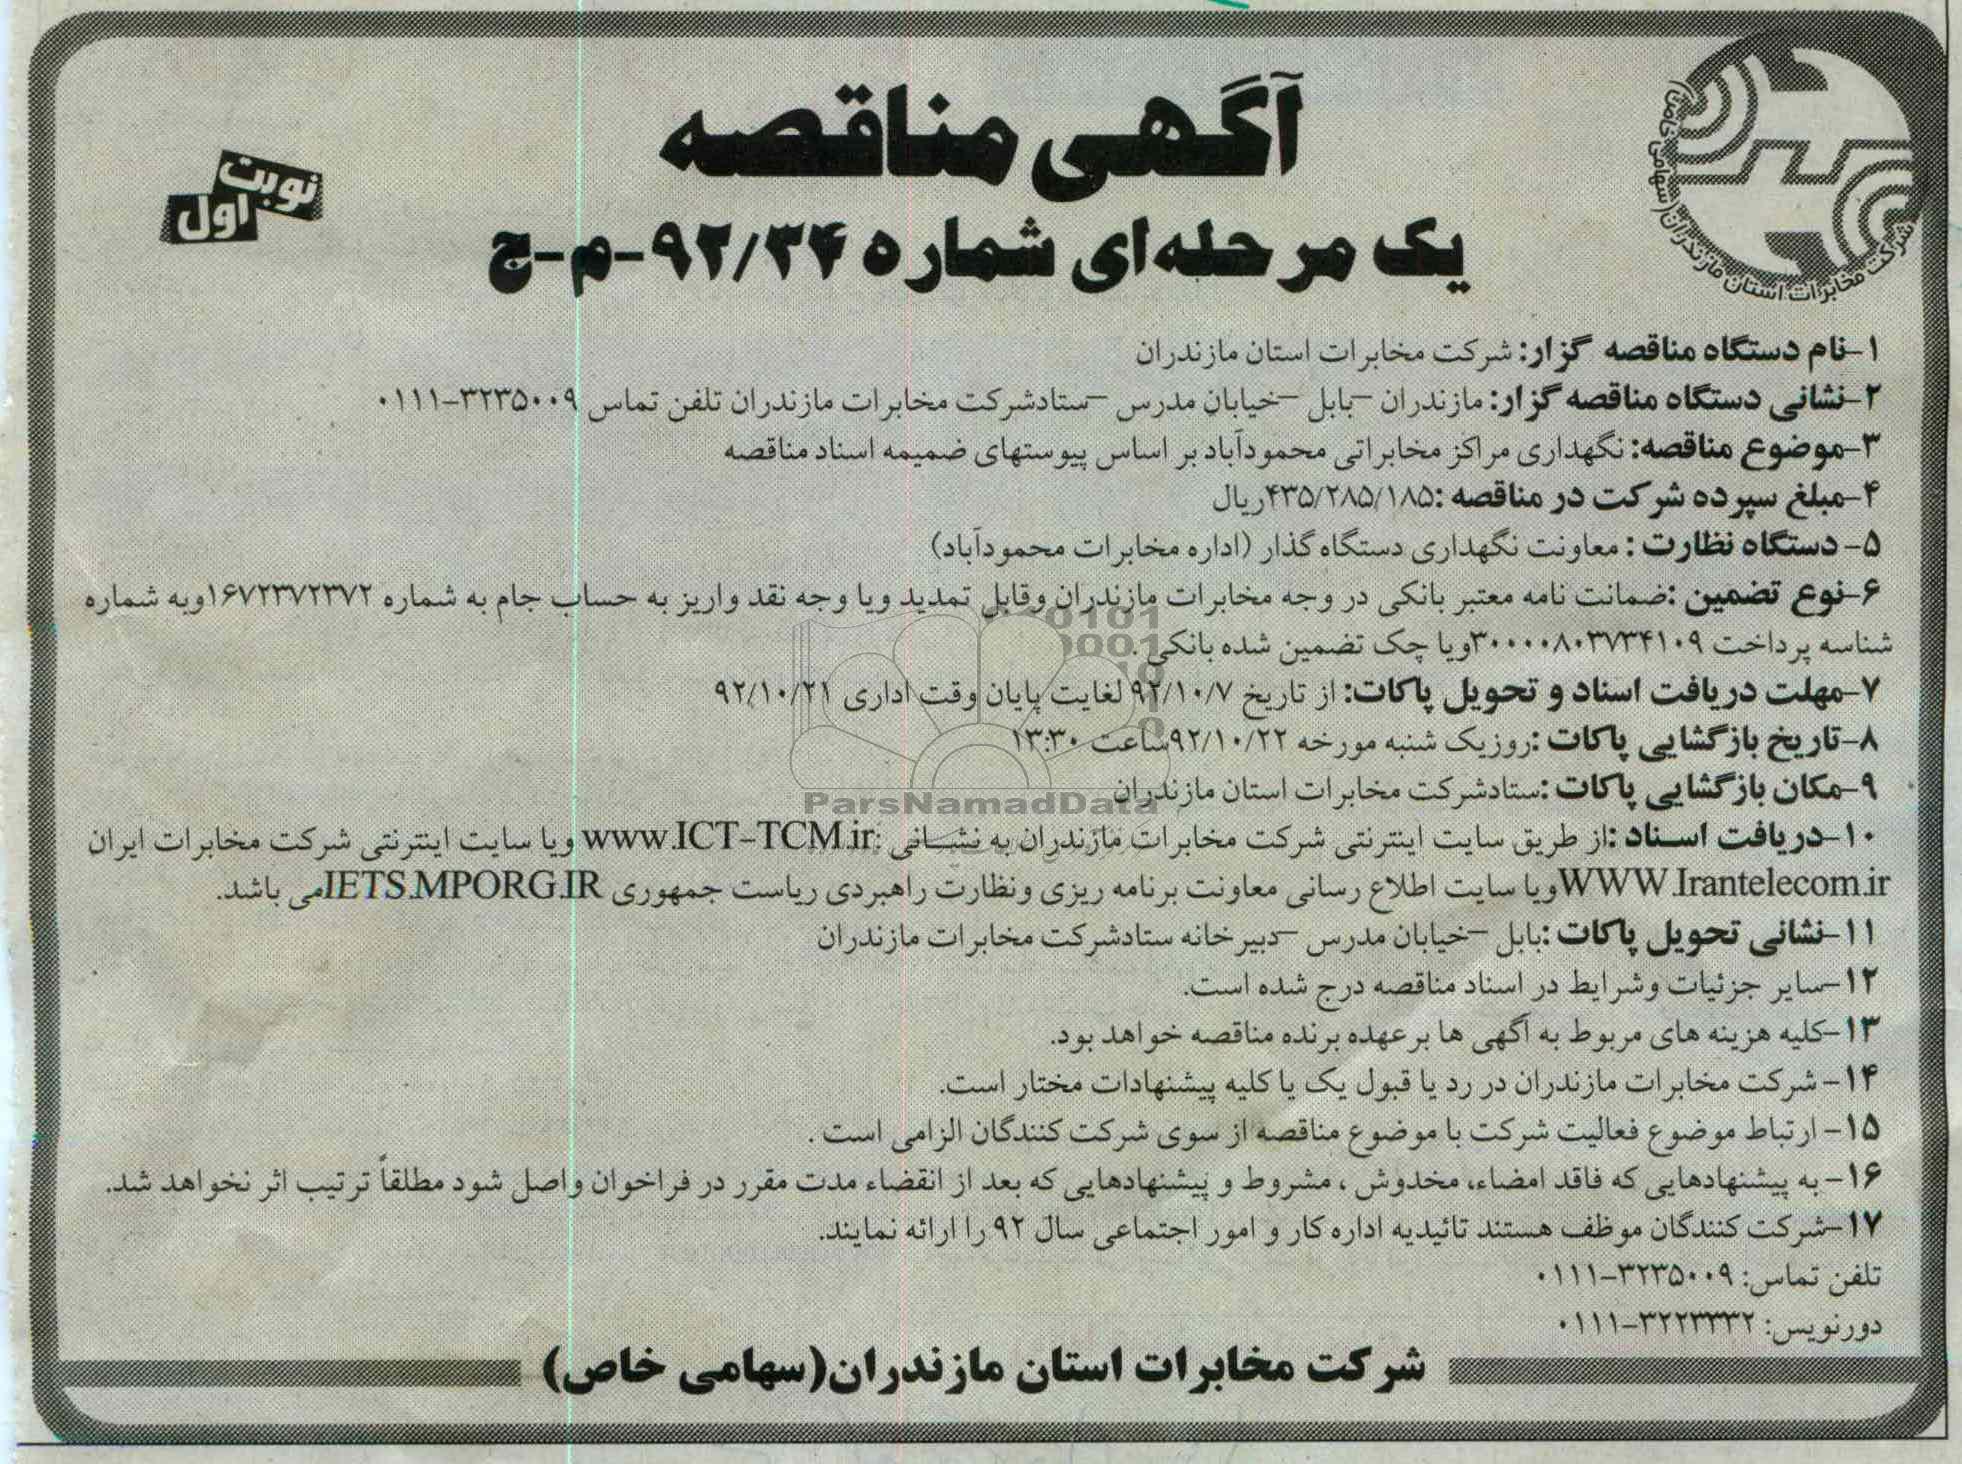 آگهی مناقصه
یک مرحله‌ای شماره ۹۲/۳۴-م-ج
نوبت
اول
شرکت مخابرات استان مازندران (سهامی خاص)
۱-نام دستگاه مناقصه گزار: شرکت مخابرات استان مازندران
۲-نشانی دستگاه مناقصه گزار: مازندران –بابل –خیابان مدرس –ستادشرکت مخابرات مازندران تلفن تماس ۳۲۳۵۰۰۹-۰۱۱۱
۳-موضوع مناقصه: نگهداری مراکز مخابراتی محمودآباد بر اساس پیوستهای ضمیمه اسناد مناقصه
۴-مبلغ سپرده شرکت در مناقصه :۴۳۵/۲۸۵/۱۸۵ریال
۵- دستگاه نظارت : معاونت نگهداری دستگاه گذار (اداره مخابرات محمودآباد)
۶-نوع تضمین :ضمانت نامه معتبر بانکی در وجه مخابرات مازندران وقابل تمدید ویا وجه نقد واریز به حساب جام به شماره ۱۶۷۲۳۷۲۳۷۲وبه شماره
شناسه پرداخت ۳۰۰۰۰۸۰۳۷۳۴۱۰۹ویا چک تضمین شده بانکی .
۷-مهلت دریافت اسناد و تحویل پاکات: از تاریخ ۹۲/۱۰/۷ لغایت پایان وقت اداری ۹۲/۱۰/۲۱
۸-تاریخ بازگشایی پاکات :روزیک شنبه مورخه ۹۲/۱۰/۲۲ساعت ۱۳:۳۰
۹-مکان بازگشایی پاکات :ستادشرکت مخابرات استان مازندران
ParsNamadData
۱۰-دریافت اسناد :از طریق سایت اینترنتی شرکت مخابرات مازندران به نشانی :www.ICT-TCM.ir ویا سایت اینترنتی شرکت مخابرات ایران
WWW.Irantelecom.irویا سایت اطلاع رسانی معاونت برنامه ریزی ونظارت راهبردی ریاست جمهوری IETS.MPORG.IRمی باشد.
۱۱-نشانی تحویل پاکات :بابل –خیابان مدرس –دبیرخانه ستادشرکت مخابرات مازندران
۱۲-سایر جزئیات وشرایط در اسناد مناقصه درج شده است.
۱۳-کلیه هزینه های مربوط به آگهی ها برعهده برنده مناقصه خواهد بود.
۱۴- شرکت مخابرات مازندران در رد یا قبول یک یا کلیه پیشنهادات مختار است.
۱۵- ارتباط موضوع فعالیت شرکت با موضوع مناقصه از سوی شرکت کنندگان الزامی است .
۱۶- به پیشنهادهایی که فاقد امضاء، مخدوش ، مشروط و پیشنهادهایی که بعد از انقضاء مدت مقرر در فراخوان واصل شود مطلقاً ترتیب اثر نخواهد شد.
۱۷-شرکت کنندگان موظف هستند تائیدیه اداره کار و امور اجتماعی سال ۹۲ را ارائه نمایند.
تلفن تماس: ۳۲۳۵۰۰۹-۰۱۱۱
دورنویس: ۳۲۲۳۳۳۲-۰۱۱۱
شرکت مخابرات استان مازندران(سهامی خاص)